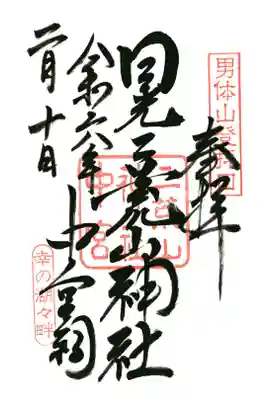 男体山登拝口
奉拝
日光二荒山神社
中宮祠
令和六年
二月十日
幸の湖々畔